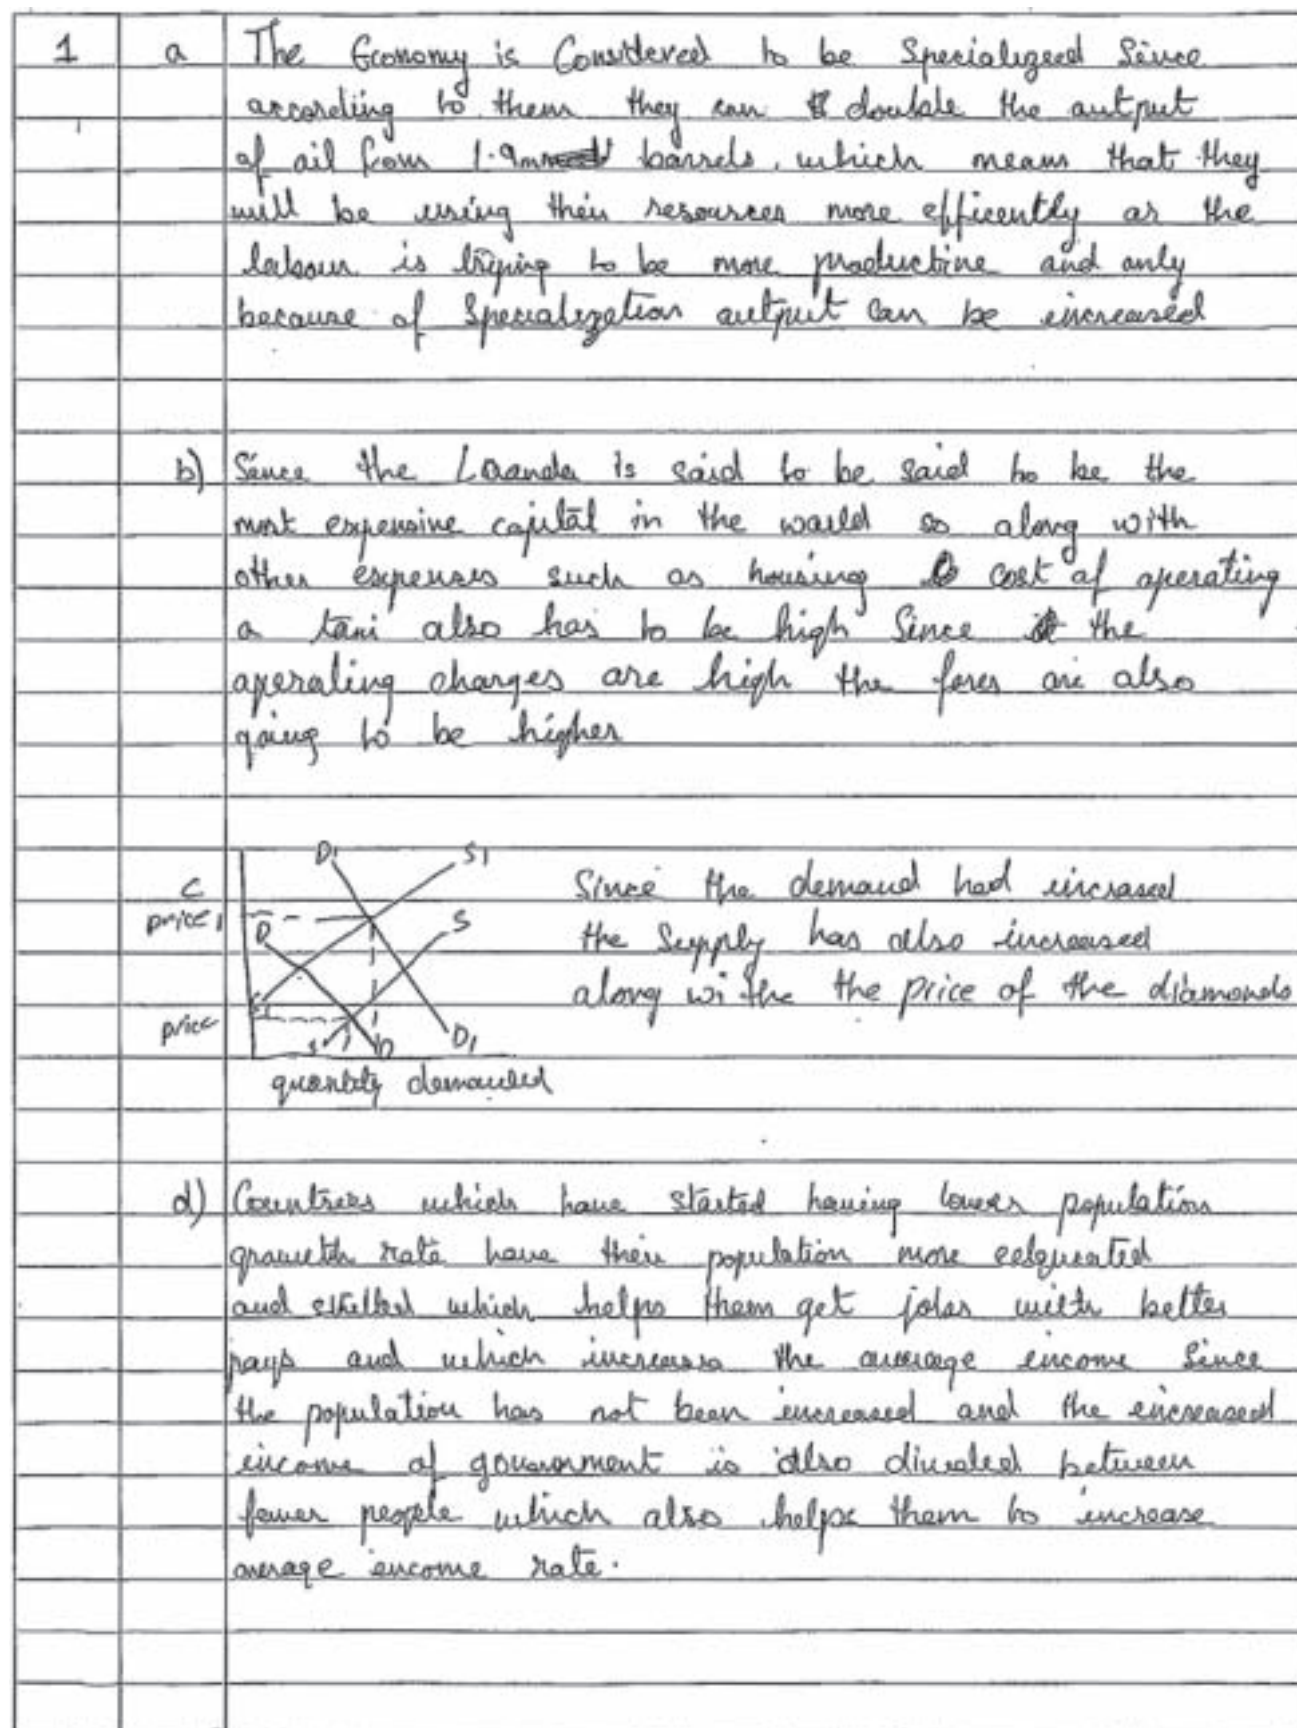 1 a The Economy is Considered to be Specialized Since
according to them they can double the output
of oil from 1.9m barrels. which means that they
will be using their resources more efficently as the
labour is trying to be more productive and only
because of Specialization output can be increased
b) Since the Luanda is said to be said to be the
most expensive capital in the world so along with
other expenses such as housing cost of operating
a taxi also has to be high Since the
operating charges are high the fares are also
going to be higher
c
price 1
price
D1
S1
D
S
S1
S
D
D1
quantity demanded
Since the demand had incrased
the Supply has also increased
along withe the price of the diamonds
d) Countries which have started having lower population
growth rate have their population more
and skilled which helps them get jobs with better
pays and which increases the average income Since
the population has not been increased and the increased
income of government is also divided between
fewer people which also helps them to increase
average income rate.